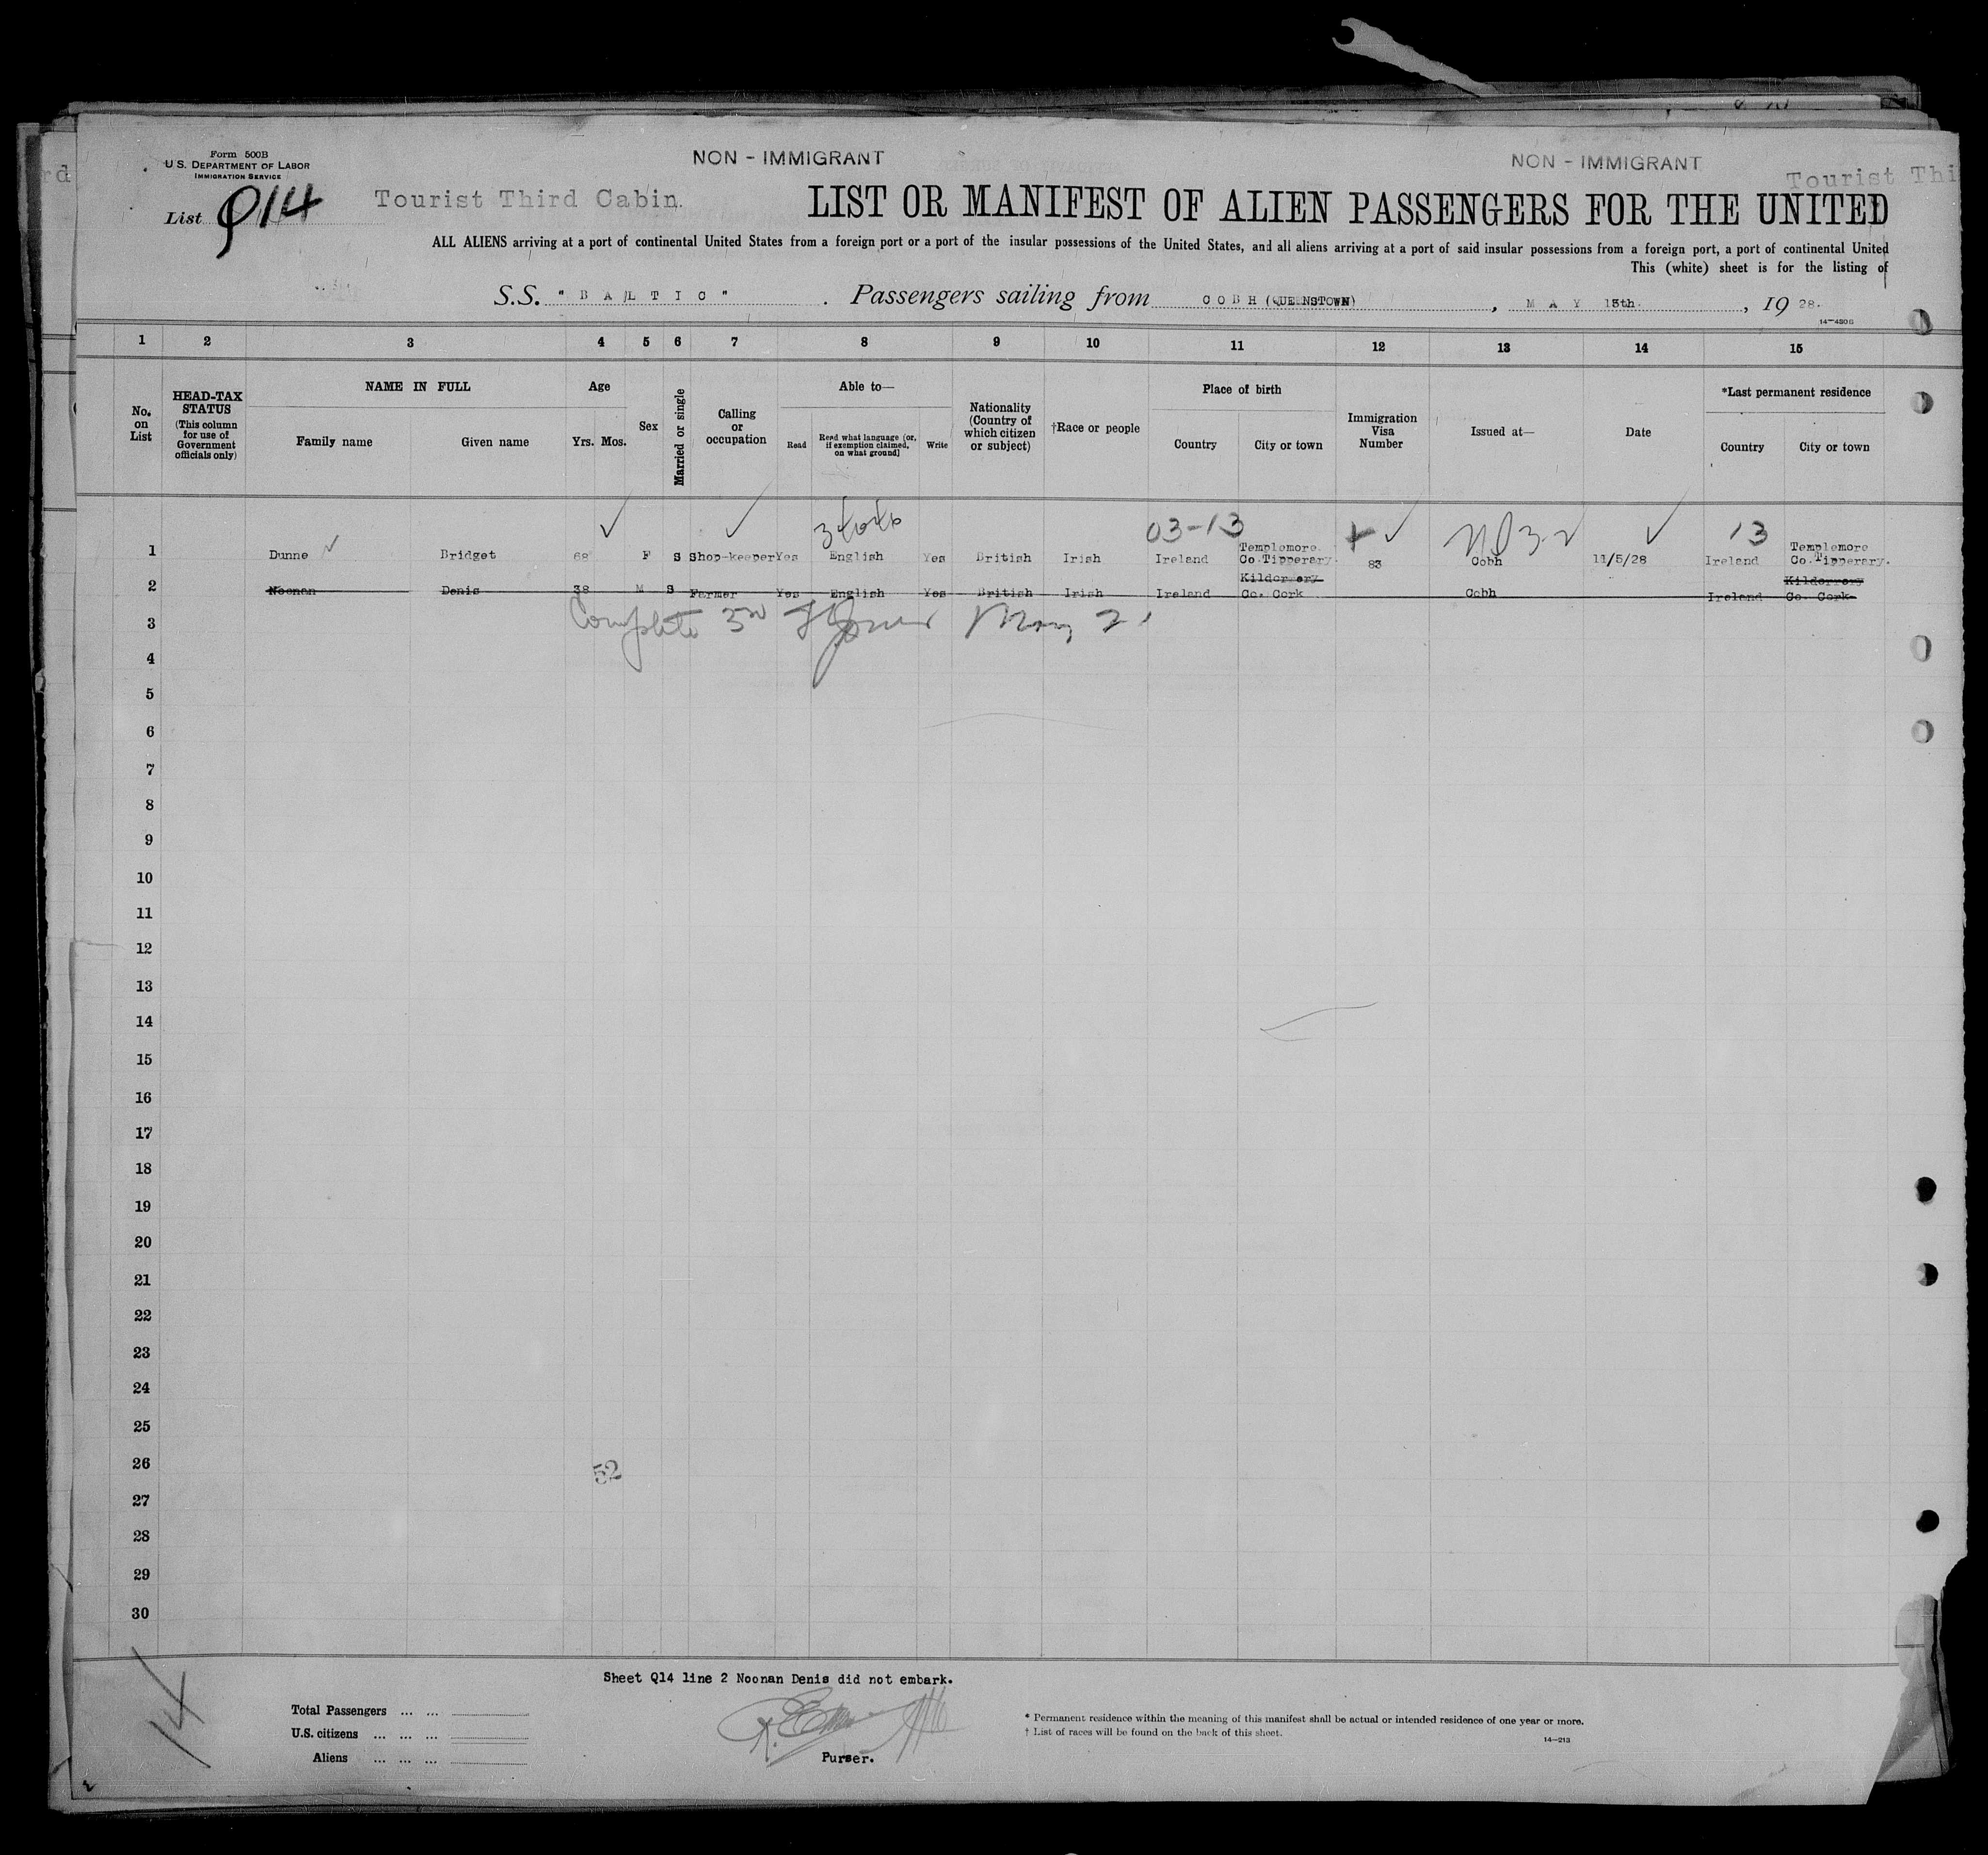 Form 500B
U.S. DEPARTMENT OF LABOR
IMMIGRATION SERVICE
NON - IMMIGRANT
NON - IMMIGRANT
List Q14
Tourist Third Cabin.
LIST OR MANIFEST OF ALIEN PASSENGERS FOR THE UNITED
Tourist Thi
ALL ALIENS arriving at a port of continental United States from a foreign port or a port of the insular possessions of the United States, and all aliens arriving at a port of said insular possessions from a foreign port, a port of continental United
This (white) sheet is for the listing of
S.S. "BALTIC". Passengers sailing from COBH (QUEENSTOWN), MAY 13th., 1928.
1 2 3 4 5 6 7 8 9 10 11 12 13 14 15
No. on List
HEAD-TAX STATUS (This column for use of Government officials only)
NAME IN FULL
Family name Given name
Age
Yrs. Mos.
Sex
Married or single
Calling or occupation
Able to—
Read Read what language [or, if exemption claimed, on what ground] Write
Nationality (Country of which citizen or subject)
†Race or people
Place of birth
Country City or town
Immigration Visa Number
Issued at—
Date
*Last permanent residence
Country City or town
03-13
13
1 Dunne Bridget 68 F S Shop-keeper Yes English Yes British Irish Ireland Templemore. Co.Tipperary. 83 Cobh 11/5/28 Ireland Templemore Co.Tipperary.
2 Noonan Denis 38 M S Farmer Yes English Yes British Irish Ireland Kildorrery Co. Cork Cobh Ireland Kildorrery Co. Cork
3
Complete
4
5
6
7
8
9
10
11
12
13
14
15
16
17
18
19
20
21
22
23
24
25
26
52
27
28
29
30
14
Sheet Q14 line 2 Noonan Denis did not embark.
Total Passengers ... ...
U.S. citizens ... ... ...
Aliens ... ... ...
Purser.
* Permanent residence within the meaning of this manifest shall be actual or intended residence of one year or more.
† List of races will be found on the back of this sheet.
14—213